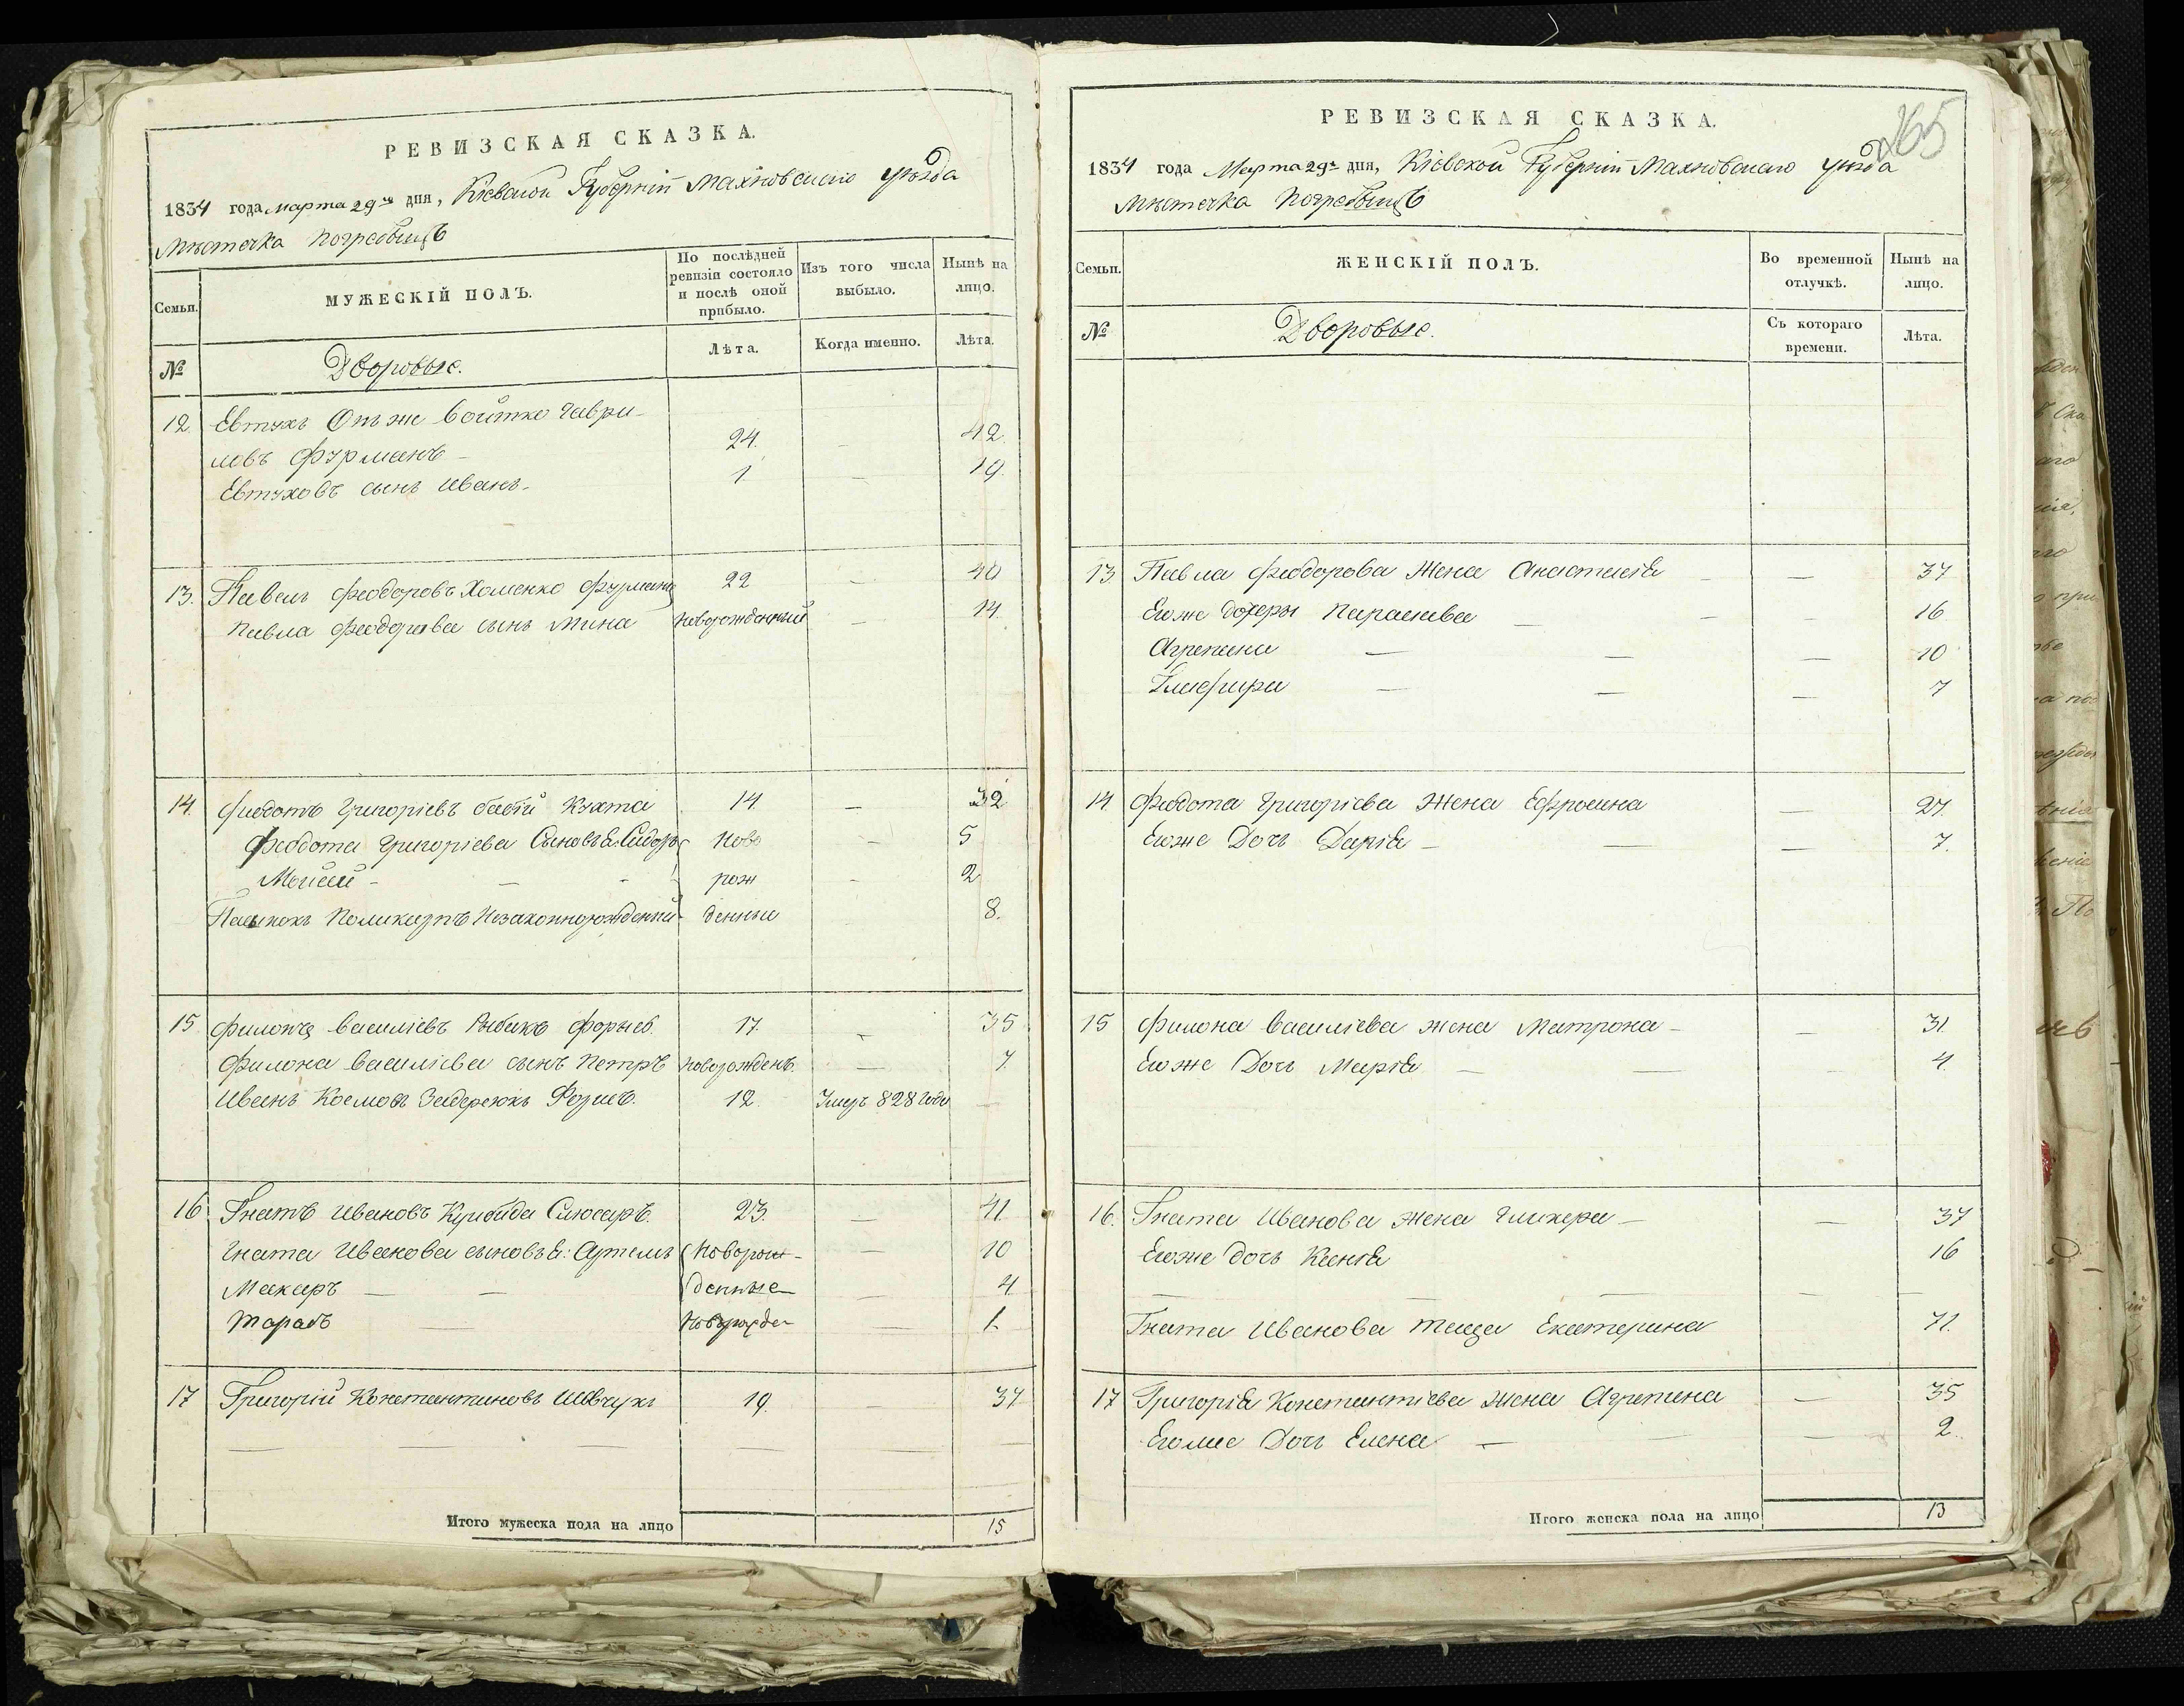 РЕВИЗСКАЯ СКАЗКА.
1834 года марта 29го дня, Кіевской Губерніи Махновскаго уѣзда
Мѣстечка Погребищъ
Семьи.
МУЖЕСКІЙ ПОЛЪ.
По послѣдней ревизіи состояло и послѣ оной прибыло.
Изъ того числа выбыло.
Нынѣ на лицо.
№
Дворовые.
Лѣта.
Когда именно.
Лѣта.
12. Евтухъ Онъ же Войтко Гаври-
ловъ Фурманъ - 24. - 42.
Евтуховъ сынъ Иванъ - 1. - 19.
13. Павелъ Феодоровъ Хоменко Фурманъ 22 - 40
Павла Феодорова сынъ Мина Новорожденный - 14.
14. Феодотъ Григоріевъ Кухта 14 - 32
Феодота Григоріева Сыновья Сидоръ Ново - 5
Мойсей - - - рож - 2
Поликарпъ Незаконнорожденный денные 8.
15. Василіевъ Рыбакъ 17. - 35
Филона Василіева сынъ Петръ Новорожденъ. - 7
Иванъ Космовъ 12. Умеръ 828 Года -
16. Гнатъ Ивановъ Слюсаръ. 23. - 41.
Гната Иванова сыновья: Артемъ Новорож- - 10
Макаръ - - денные - 4
Тарасъ - - 1
17 Григорій Константиновъ Шевчукъ 19. - 37
- - - - -
Итого мужеска пола на лицо 15
РЕВИЗСКАЯ СКАЗКА.
265
1834 года Марта 29го дня, Кіевской Губерніи Махновскаго уѣзда
Мѣстечка Погребищъ
Семьи.
ЖЕНСКІЙ ПОЛЪ.
Во временной отлучкѣ.
Нынѣ на лицо.
№
Дворовые.
Съ котораго времени.
Лѣта.
13. Павла Феодорова Жена Анастасія - - 37
Егоже дочери Параскева - - - 16
Агрепина - - - 10
Глафира - - - 7
14 Феодота Григоріева Жена Ефросина - 27.
Егоже Дочь Дарія - - - 7.
15 Филона Василіева жена Матрона - - 31.
Егоже Дочь Марія - - - 4.
16. Гната Иванова жена Гликера - - 37
Егоже дочь Ксенія 16
- - - -
Гната Иванова теща Екатерина 71.
17 Григорія Константіева жена Агрепина - 35
Егоже Дочь Елена - - - 2.
Итого женска пола на лицо 13